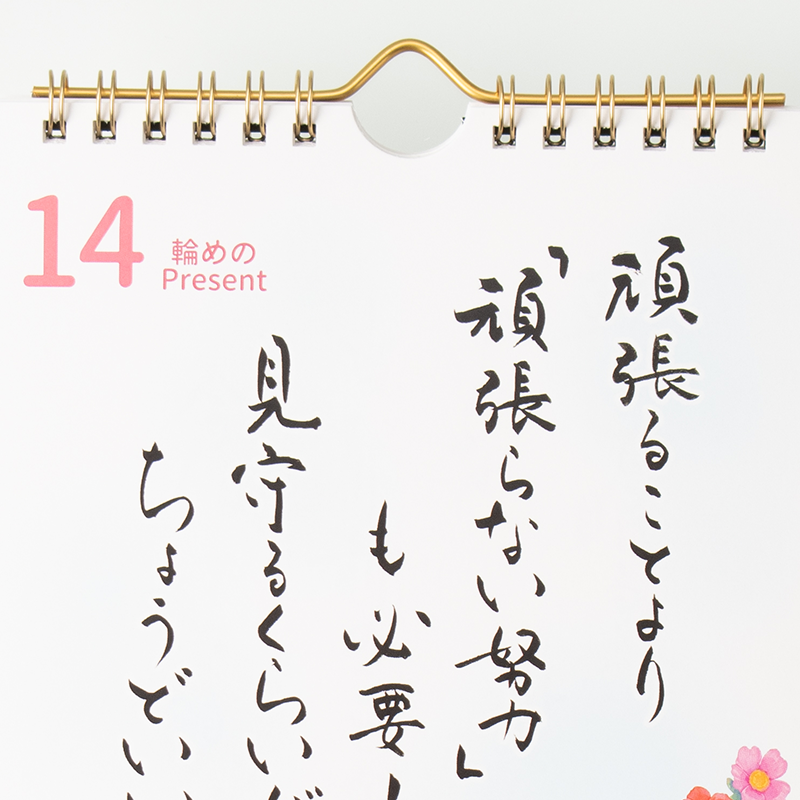 14
輪めの
Present
頑張ることより
「頑張らない努力」
も必要
見守るくらいが
ちょうどいい